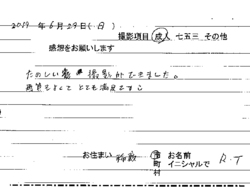 2019年6月29日(日)
撮影項目 成人 七五三 その他
感想をお願いします
たのしい 撮影ができました。
とても満足です
お住まい 市町村 お名前 イニシャルで R.T